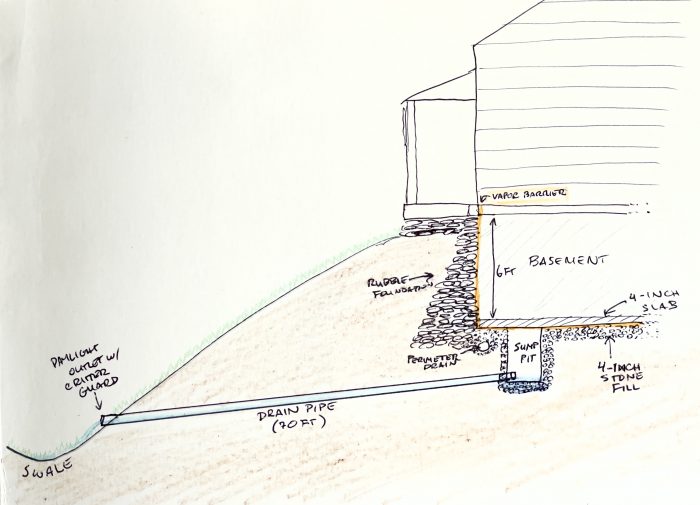 VAPOR BARRIER
6FT
BASEMENT
RUBBLE
FOUNDATION
4-INCH
SLAB
PERIMETER
DRAIN
SUMP
PIT
4-INCH
STONE
FILL
DAYLIGHT
OUTLET W/
CRITTER
GUARD
DRAIN PIPE
(70FT)
SWALE